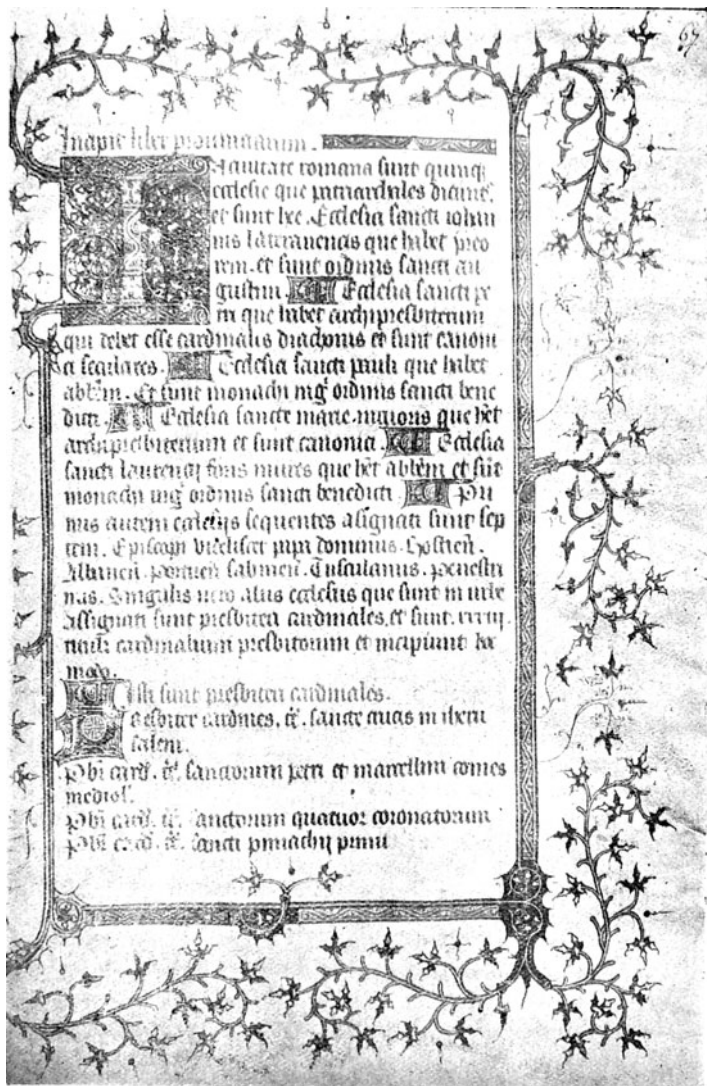 67
Incipit liber prouincialium.
In ciuitate romana sunt quinq
ecclesie que patriarchales dicunt᷑.
et sunt hec. Ecclesia sancti iohan
nis lateranensis que habet prio
rem. et sunt ordinis sancti au
gustini. Ecclesia sancti pe
tri que habet archipresbiterum
qui debet esse cardinalis diachonus et sunt canoni
ci seculares. Ecclesia sancti pauli que habet
abbēm. Et sunt monachi nigꝰ ordinis sancti bene
dicti. Ecclesia sancte marie maioris que hēt
archipresbiterum et sunt canonici Ecclesia
sancti laurencij foris muros que hēt abbēm et sūt
monachi nigꝰ ordinis sancti benedicti. Pri
mis autem ecclesijs sequentes asignati sunt sep
tem. Episcopi videlicet papa dominus. Hostien̄.
Albanen̄. Portuen̄ sabinen̄. Tusculanus. Penestri
nas. Singulis uero aliis ecclesiis que sunt in urbe
assignati sunt presbiteri cardinales. et sunt.
tituli cardinalium presbitorum et incipiunt hoc
modo.
Isti sunt presbiteri cardinales.
Presbiter cardines. tt̄. sancte crucis in iheru
salem.
Pbr̄ card̄. tt̄. sanctorum petri et marcellini comes
mediol̄.
Pbr̄ card̄. tt̄. sanctorum quatuor coronatorum
Pbr̄ card̄. tt̄. sancti pimachij primi